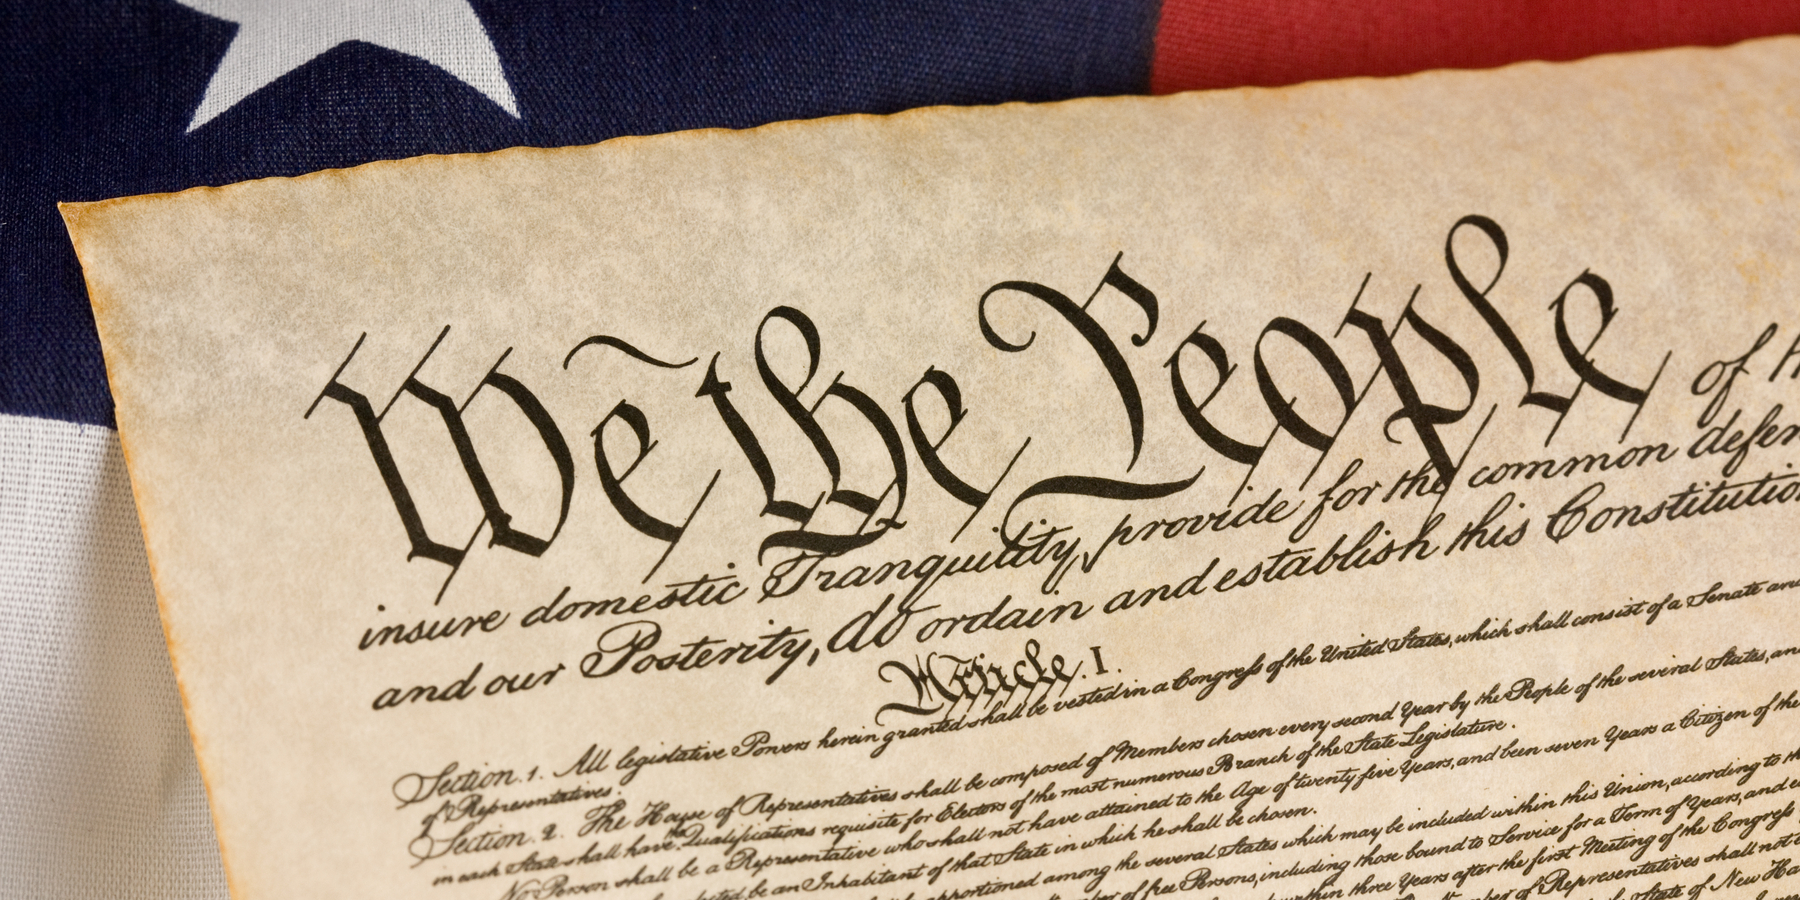 We the People of
insure domestic Tranquility, provide for the common defen
and our Posterity, do ordain and establish this Constitutio
Article. I.
Section. 1. All legislative Powers herein granted shall be vested in a Congress of the United States, which shall consist of a Senate and
of Representatives.
Section. 2. The House of Representatives shall be composed of Members chosen every second Year by the People of the several States, and
in each State shall have the Qualifications requisite for Electors of the most numerous Branch of the State Legislature.
No Person shall be a Representative who shall not have attained to the Age of twenty five Years, and been seven Years a Citizen of the
be an Inhabitant of that State in which he shall be chosen.
apportioned among the several States which may be included within this Union, according to
of free Persons, including those bound to Service for a Term of Years, and
within three Years after the first Meeting of the Congress
Number of Representatives shall not
State of New